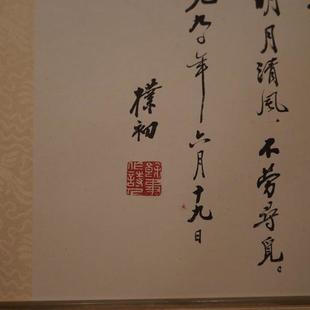 明月清風，不勞尋覓。
九九〇年六月十九日
樸初